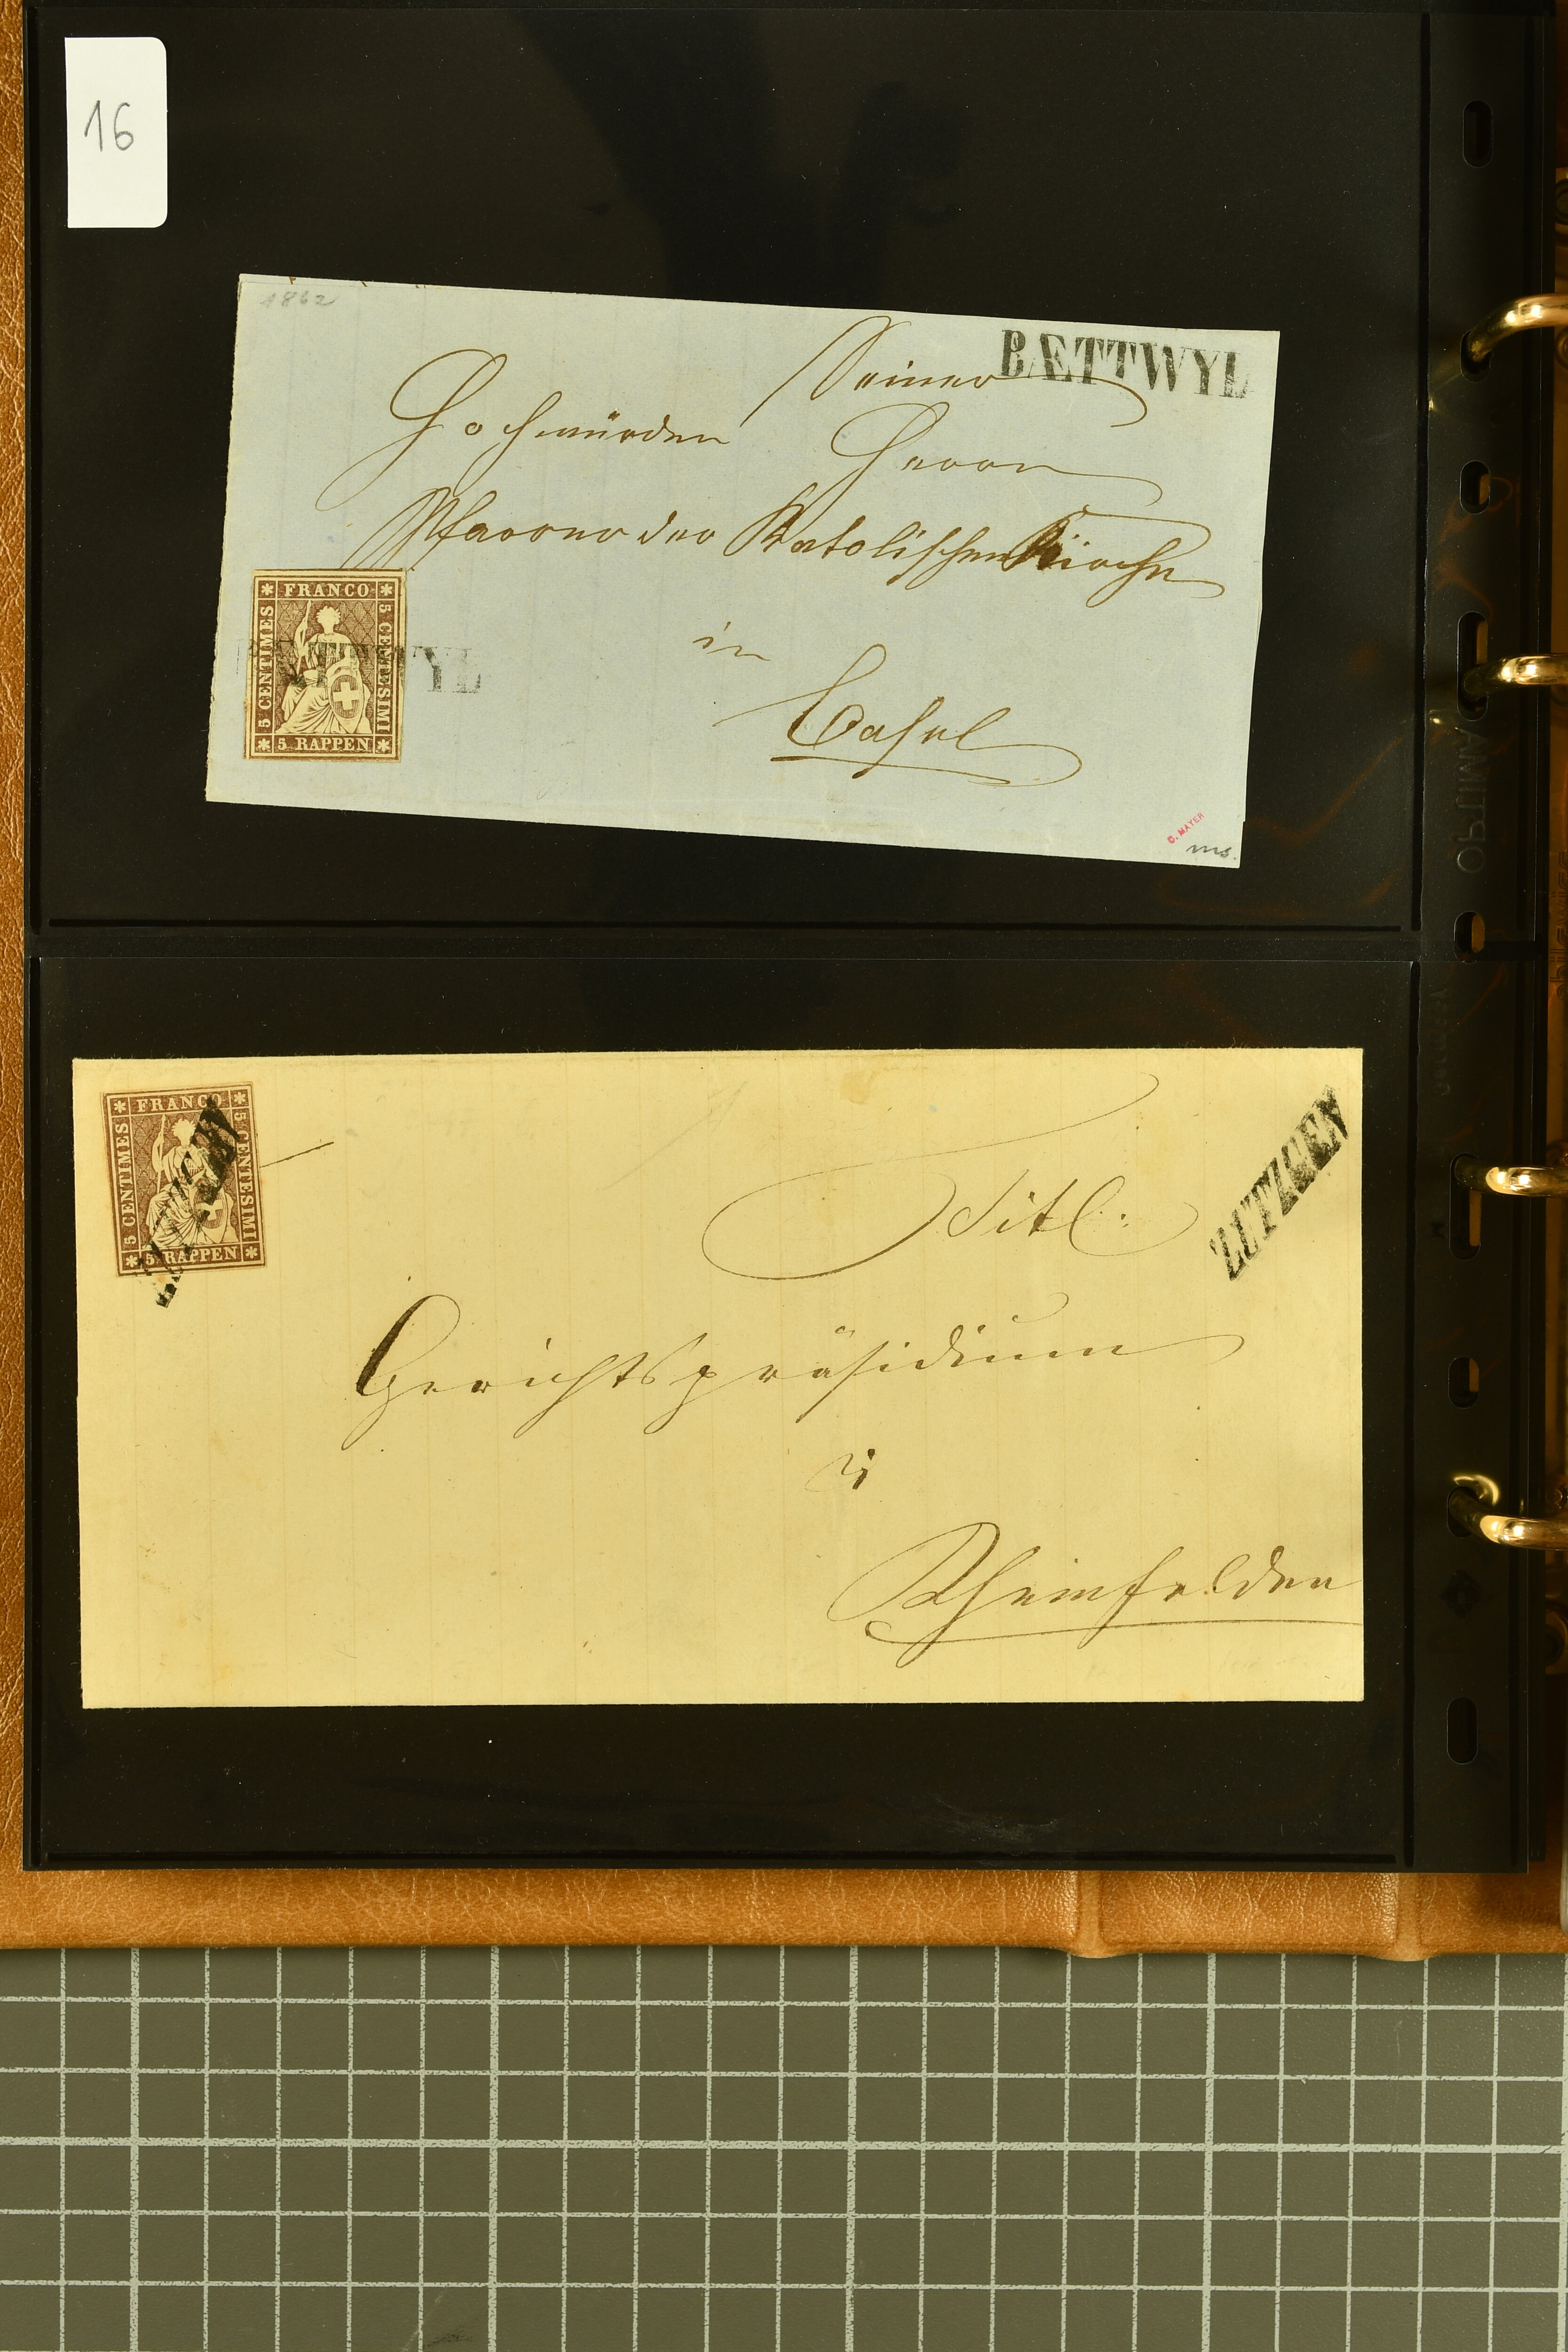 16
1862
BÆTTWYL
Seiner
Hochwürden Herrn
Pfarrer der Katolischen Kirche
in
Basel
FRANCO
5 CENTIMES
5 CENTESIMI
5 RAPPEN
BÆTTWYL
C. MAYER
ms.
FRANCO
5 CENTIMES
5 CENTESIMI
5 RAPPEN
ZUZGEN
Titl.
Gerichtspräsidium
Rheinfelden